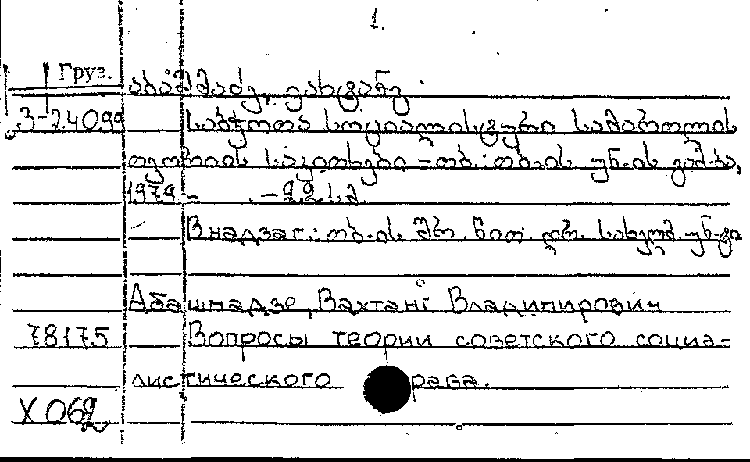 1.
Груз. აბაშმაძე, ვახტანგ
3-24099 საბჭოთა სოციალისტური სამართლის
თეორიის საკითხები. – თბ.: თბ-ის უნ-ის გამ-ბა,
1979 – . – 22 ს.მ.
В надзаг.: თბ-ის შრ. წით. დრ. სახელმ. უნ-ტი
Абашмадзе, Вахтанг Владимирович
78175 Вопросы теории советского социа-
листического рава.
X 062